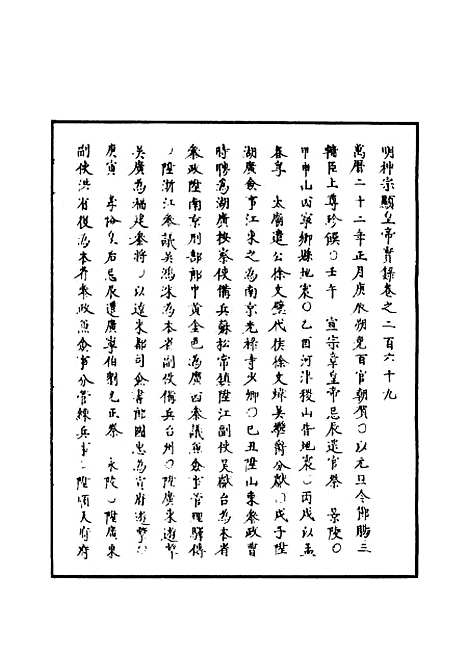 明神宗顯皇帝實錄卷之二百六十九
萬曆二十二年正月庚辰朔免百官朝賀○以元旦令節賜三
輔臣上尊珍饌○壬午　宣宗章皇帝忌辰遣官祭　景陵○
甲申山西寧鄉縣地震○乙酉河津稷山各地震○丙戌以孟
春享　太廟遣公徐文璧代侯徐文煒吳繼爵分獻○戊子陞
湖廣僉事江東之為南京光祿寺少卿○己丑陞山東參政曹
時聘為湖廣按察使備兵蘇松常鎮陞江副使吳獻台為本省
參政陞南京刑部郎中黃金色為廣西參議兼僉事管理驛傳
○陞浙江參議吳鴻洙為本省副使備兵台州○陞廣東遊擊
吳廣為福建參將○以遼東都司僉書熊國忠為宣府遊擊○
庚寅　孝恪皇后忌辰遣廣寧伯劉允正祭　永陵○陞廣東
副使洪有復為本省參政兼僉事分管練兵事○陞順天府府